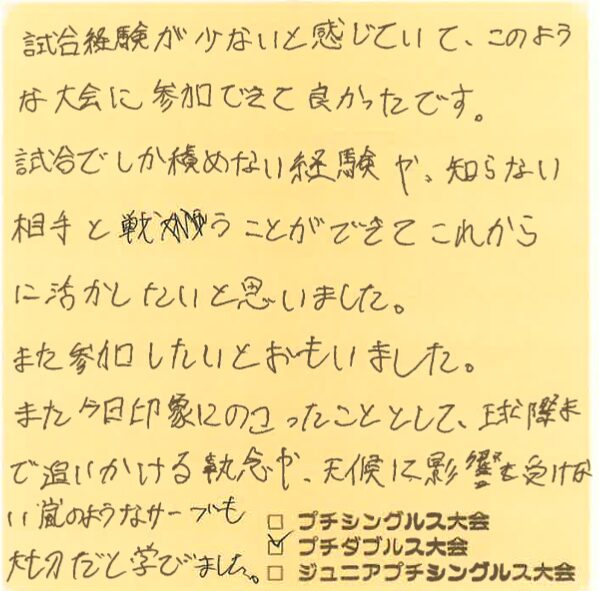 試合経験が少ないと感じていて、このよう
な大会に参加できて良かったです。
試合でしか積めない経験や、知らない
相手と戦うことができてこれから
に活かしたいと思いました。
また参加したいとおもいました。
また今日印象にのこったこととして、球際ま
で追いかける執念や、天候に影響を受けな
い嵐のようなサーブも
大切だと学びました。
□ プチシングルス大会
☑ プチダブルス大会
□ ジュニアプチシングルス大会